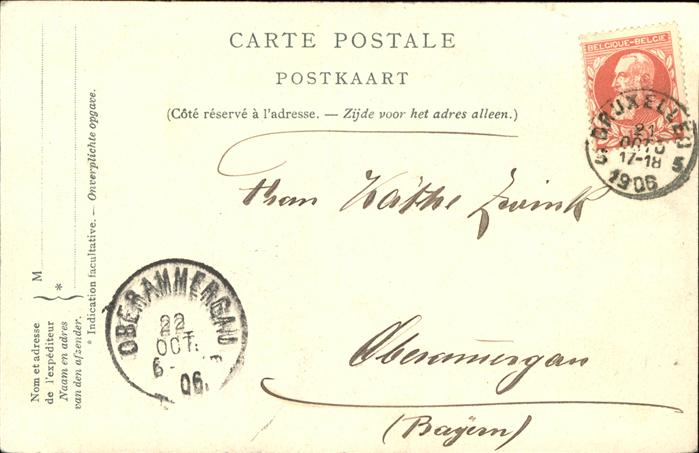 CARTE POSTALE
POSTKAART
(Côté réservé à l'adresse. — Zijde voor het adres alleen.)
BELGIQUE-BELGIË
BRUXELLES 5
21
OCTO
17-18
1906
Frau Käthe Zwink
Oberammergau
(Bayern)
OBERAMMERGAU
22
OCT.
6-
06.
M
*
Nom et adresse
de l'expéditeur
Naam en adres
van den afzender.
* Indication facultative. — Onverplichte opgave.